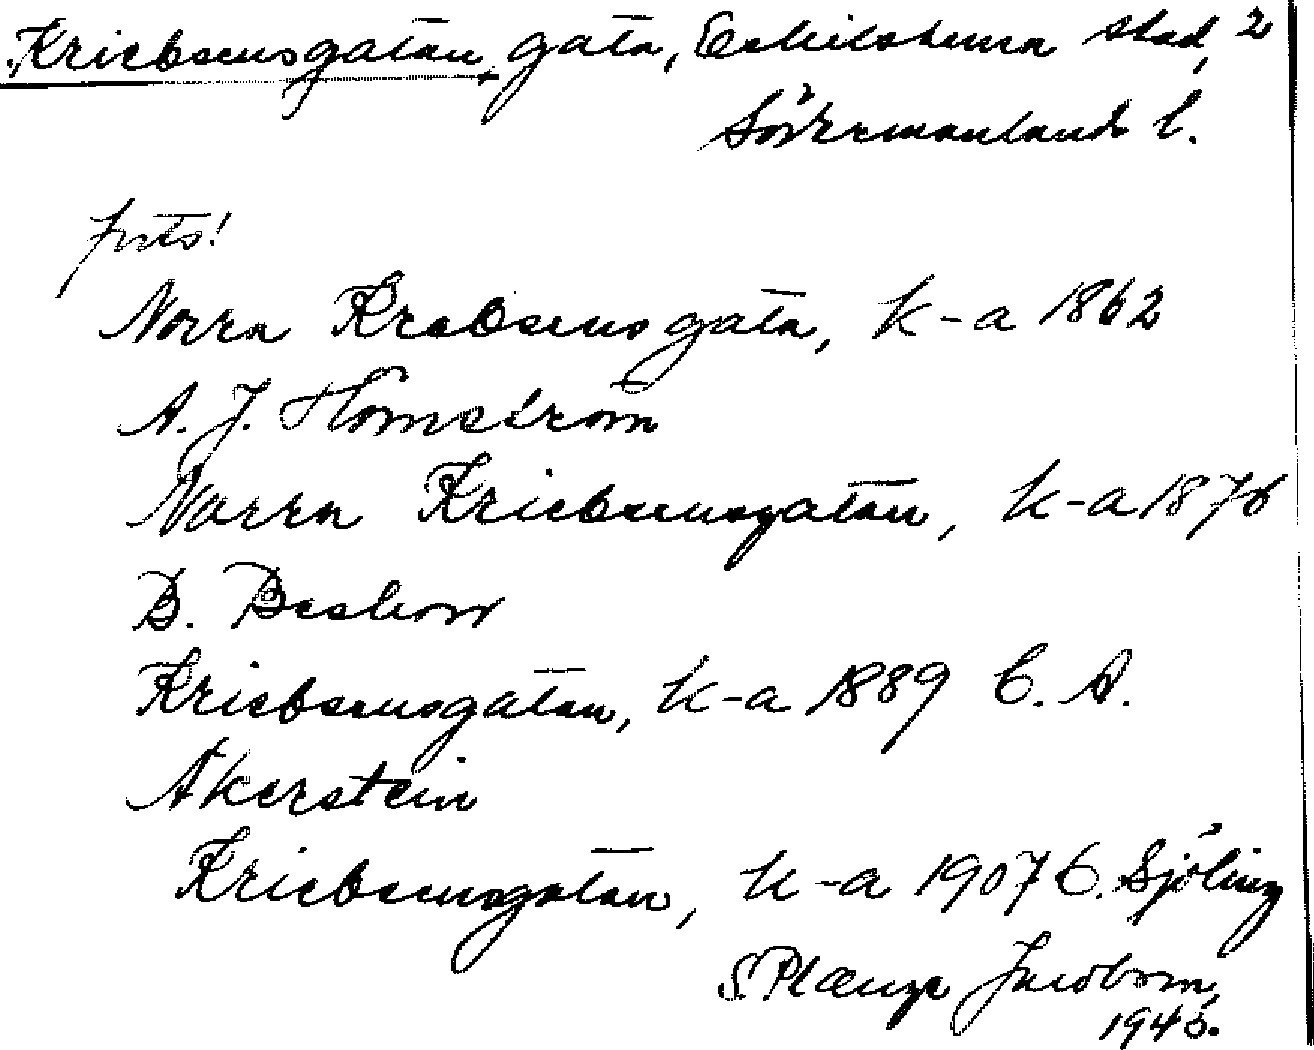 Kriebsensgatan, gata, Eskilstuna stad, 2
Södermanlands l.
forts!
Norra Krebsensgata, k-a 1862
A. J. Hornström
Norra Kriebsensgatan, k-a 1876
B. Beskow
Kriebsensgatan, k-a 1889 C. A.
Åkerstein
Kriebsensgatan, k-a 1907 C. Sjöling
S. Plænge Jacobson,
1945.